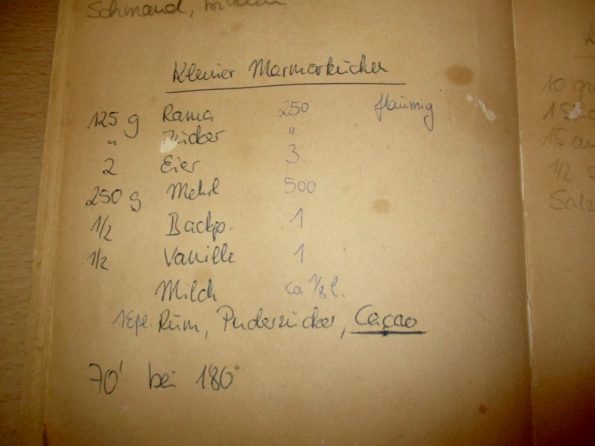 Schmand,
Kleiner Marmorkuchen
125 g Rama 250 flaumig
" Zucker "
2 Eier 3
250 g Mehl 500
1/2 Backp. 1
1/2 Vanille 1
Milch ca 1/8 l.
1 Epl. Rum, Puderzucker, Cacao
70' bei 180°
10
1
15
1/2
Salz